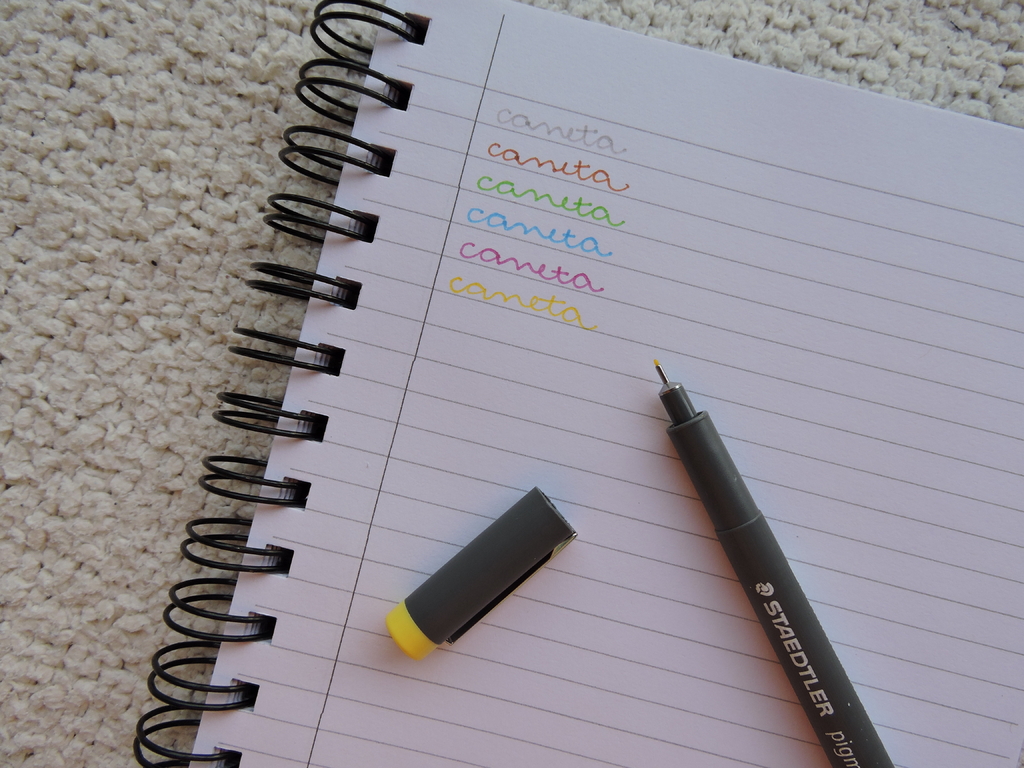 caneta
caneta
caneta
caneta
caneta
caneta
STAEDTLER pigm